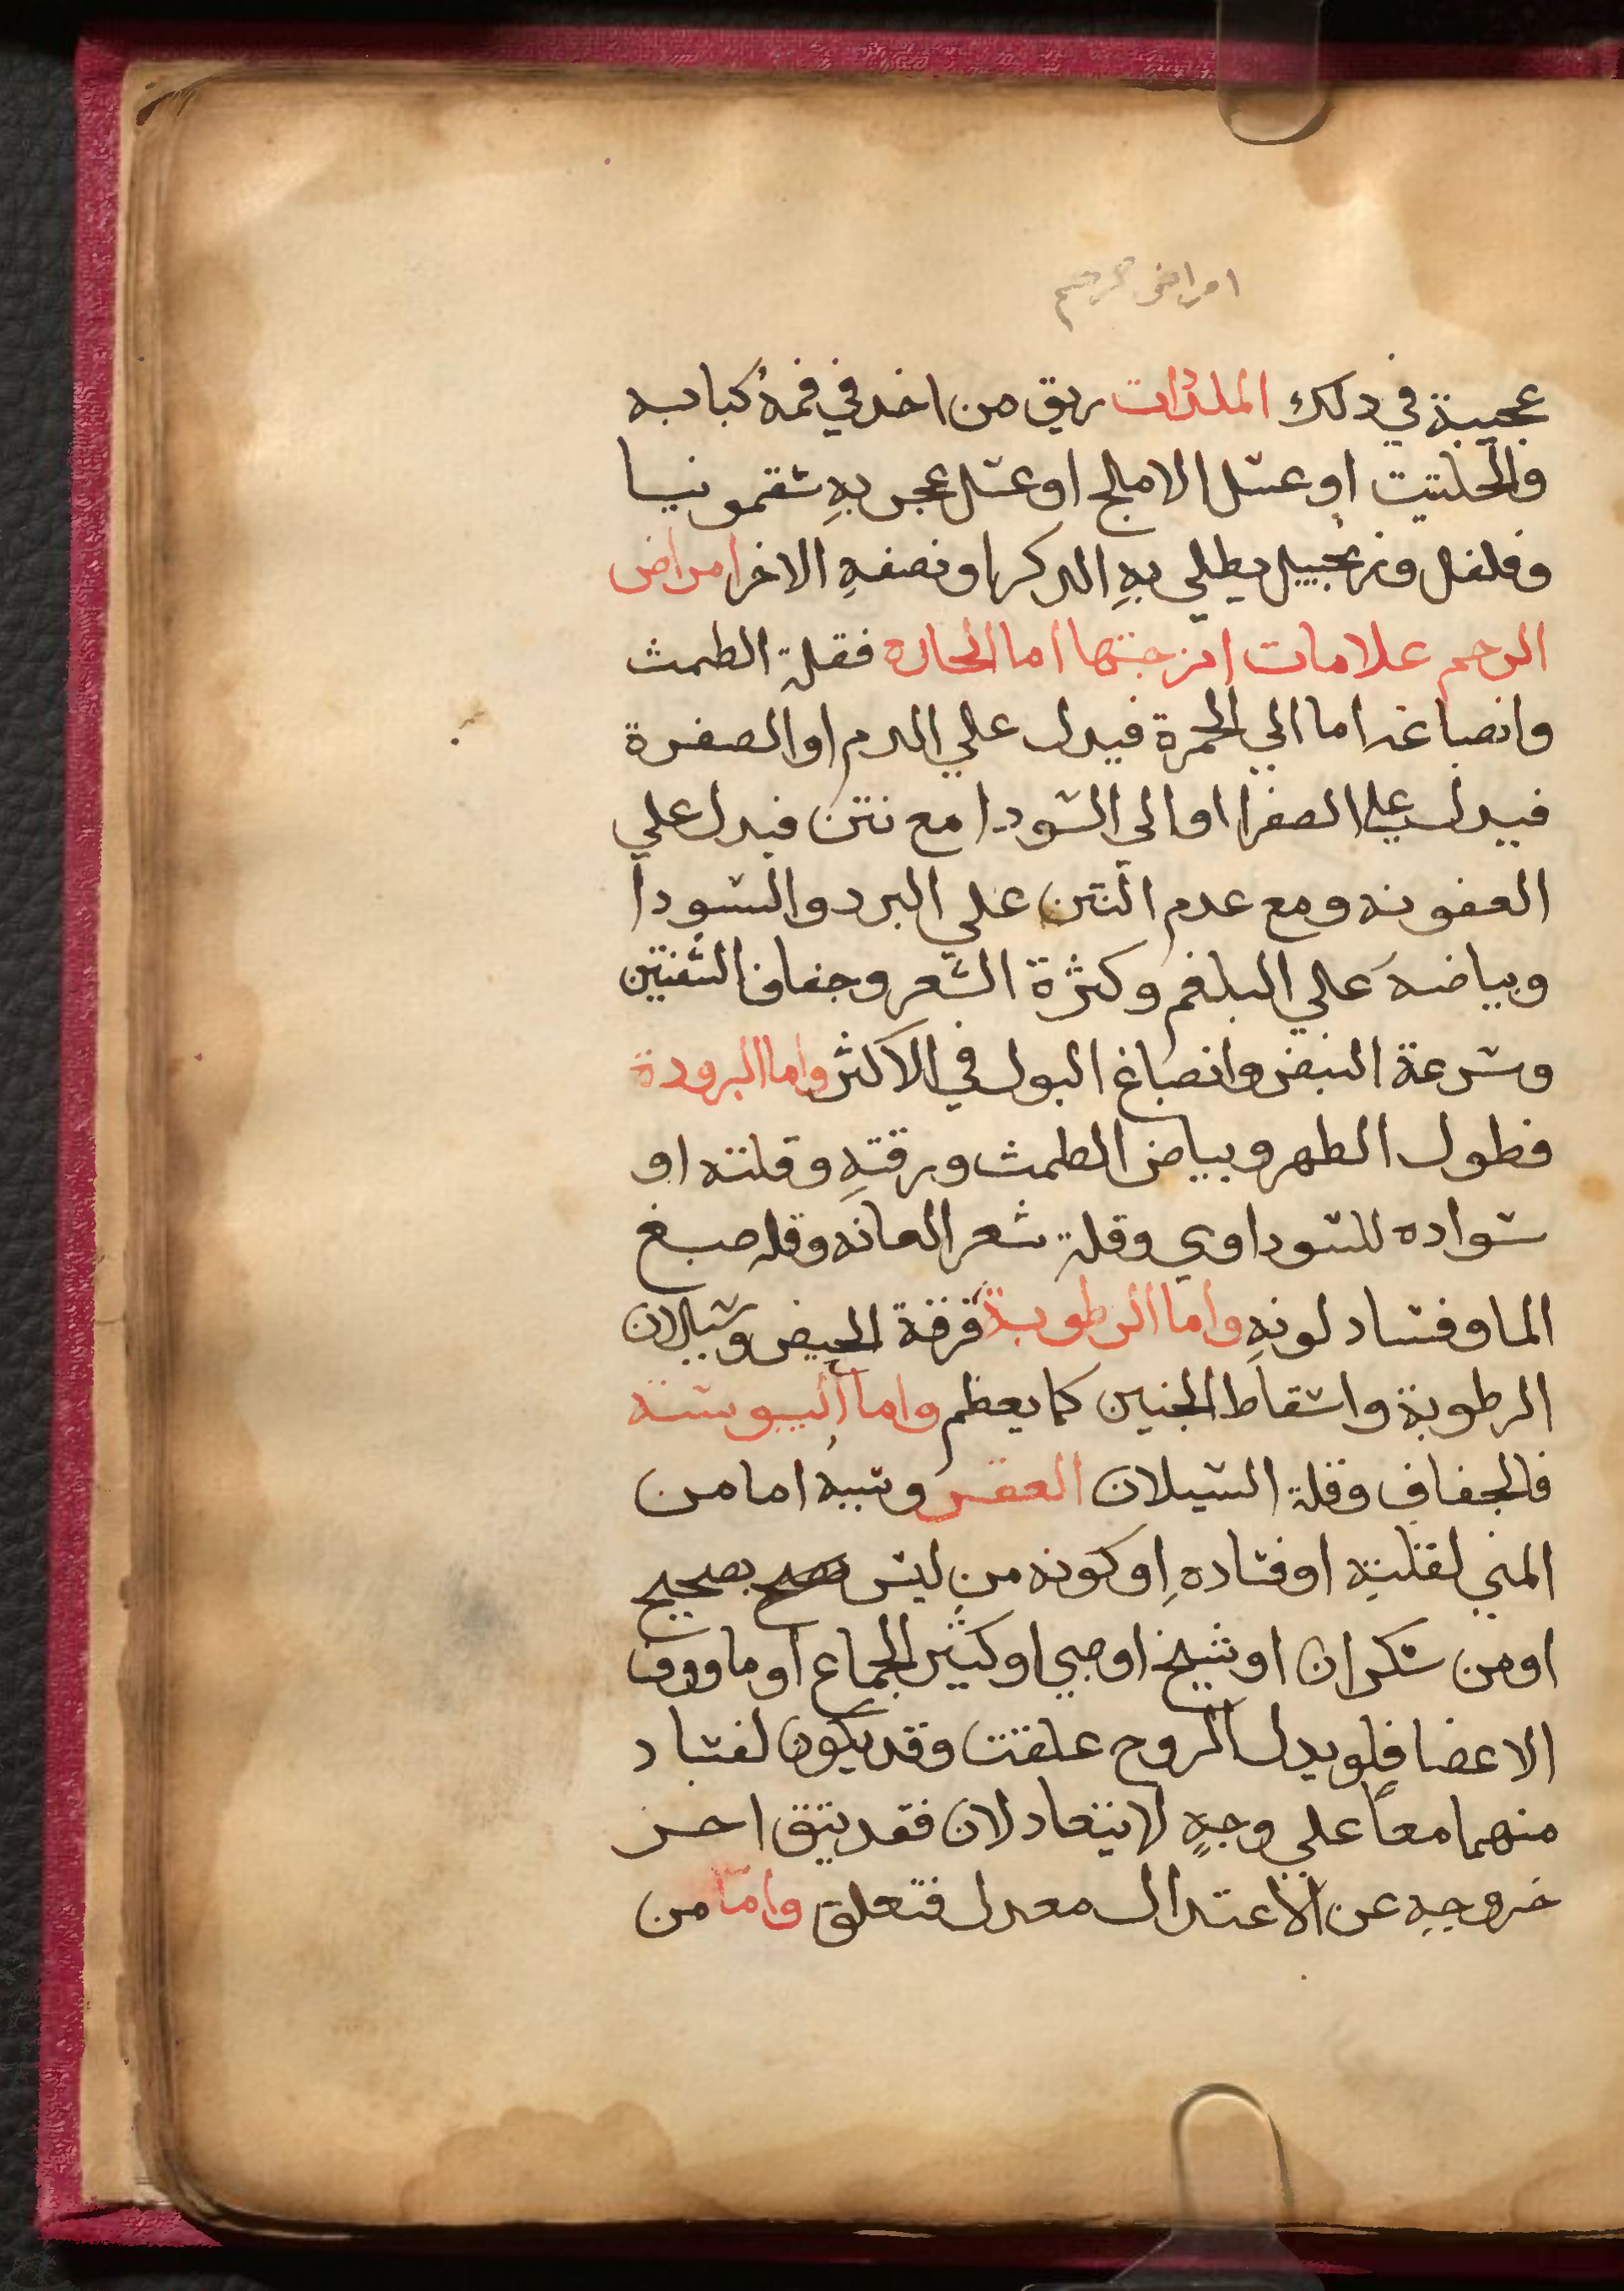 امراض الرحم
عجيبة في دلك الملذذات ريق من اخد في فمهُ كبابه
والحلتيت او عسل الاملج او عسل عجن بهِ سقمونيا
وفلفل وزنجبيل يطلي بهِ الدكر او نصفهِ الاخر امراض
الرحم علامات امزجتها اما الحاره فقلة الطمث
وانصباغه اما الي الحمرة فيدل علي الدم او الصفرة
فيدل علي الصفرا او الى السودا مع نتن فيدل علي
العفونه ومع عدم النتن علي البرد والسودا
وبياضه علي البلغم وكثرة الشعر وجفاف الشفتين
وسرعة النبض وانصباغ البول في الاكثر واما البرودة
فطول الطهر وبياض الطمث ورقتهِ وقلته او
سواده للسوداوي وقلة شعر العانه وقله صبغ
الما وفساد لونهِ واما الرطوبة فرقة الحيض وسيلان
الرطوبة واسقاط الجنين كما يعظم واما اليبوسة
فالجفاف وقلة السيلان العقر وسببهُ اما من
المني لقلتهِ او فسادهِ او كونه من ليس بصحيح
او من سكران او شيخ او صبي او كثير الجماع او ماووف
الاعضا فلو بدل الزوج علقت وقد يكون لفساد
منهما معاً علي وجهٍ لا يتعادلان فقد يتفق اخر
خروجهِ عن الاعتدال معدل فتعلق واما من